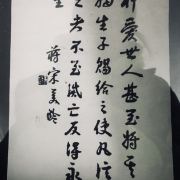 神愛世人甚至將其
獨生子賜給之使凡信
之者不至滅亡反得永
生
蔣宋美齡